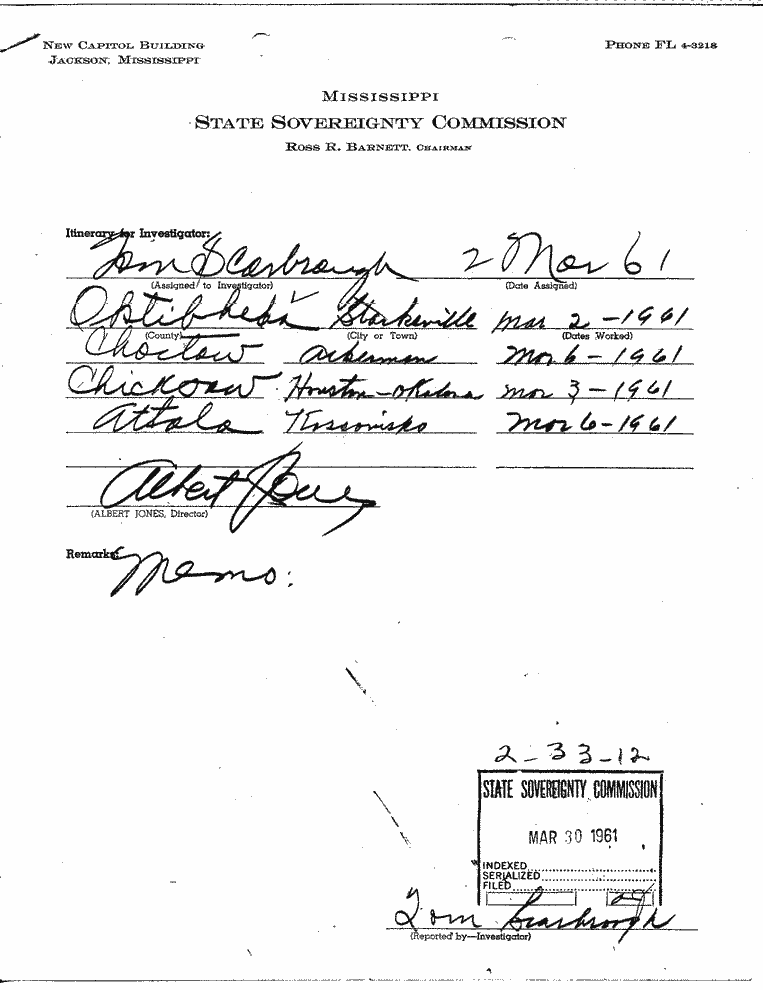 NEW CAPITOL BUILDING PHONE FL 4-3218
JACKSON, MISSISSIPPI
MISSISSIPPI
STATE SOVEREIGNTY COMMISSION
ROSS R. BARNETT, CHAIRMAN
Itinerary for Investigator:
Tom Scarbrough 2 Mar 61
(Assigned to Investigator) (Date Assigned)
Oktibbeha Starkeville Mar 2-1961
(County) (City or Town) (Dates Worked)
Choctaw Ackerman Mar 6-1961
Chickasaw Houston-Okolona Mar 3-1961
Attala Kosciusko Mar 6-1961
Albert Jones
(ALBERT JONES, Director)
Remarks:
Memo:
2-33-12
STATE SOVEREIGNTY COMMISSION
MAR 30 1961
INDEXED
SERIALIZED
FILED
Tom Scarbrough
(Reported by—Investigator)